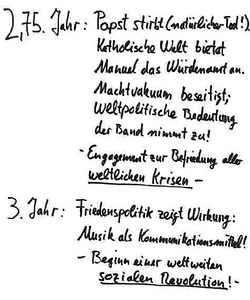 2,75. Jahr: Papst stirbt (natürlicher Tod!).
Katholische Welt bietet
Manuel das Würdenamt an.
Machtvakuum beseitigt;
Weltpolitische Bedeutung
der Band nimmt zu!
- Engagement zur Befriedung aller
weltlichen Krisen -
3. Jahr: Friedenspolitik zeigt Wirkung:
Musik als Kommunikationsmittel!
- Beginn einer weltweiten
sozialen Revolution! -